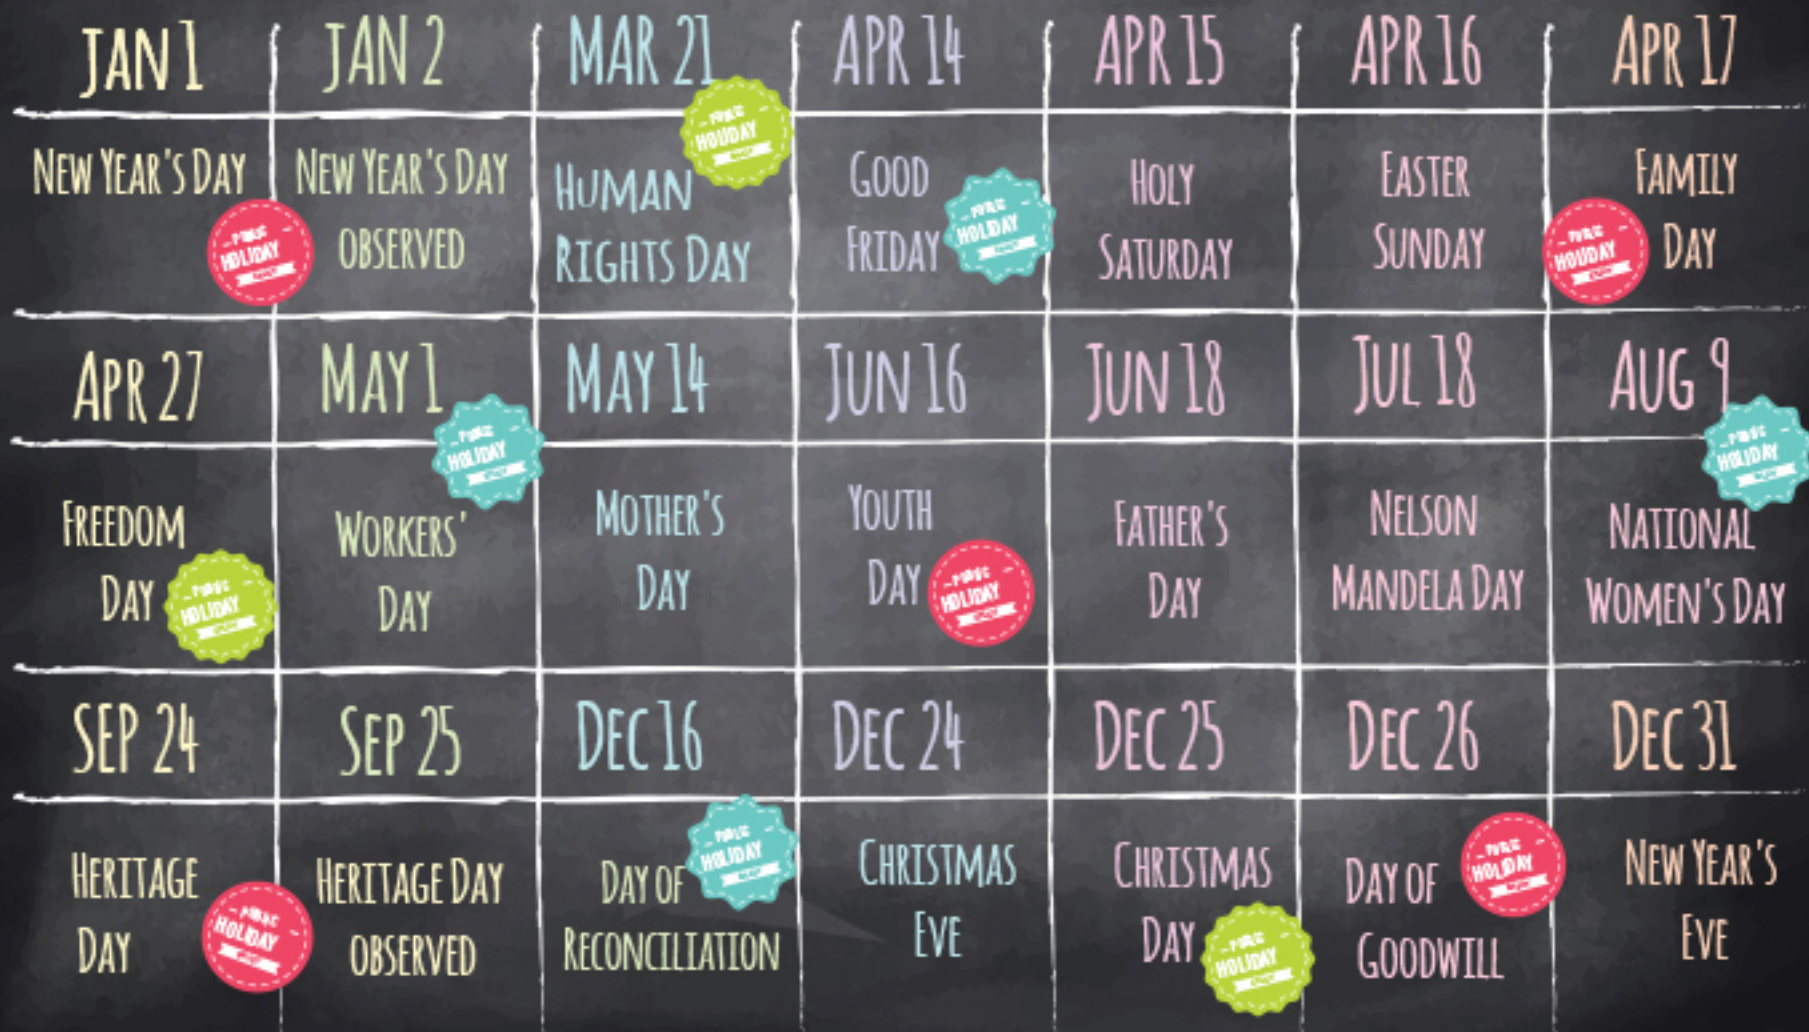 JAN 1
JAN 2
MAR 21
APR 14
APR 15
APR 16
APR 17
NEW YEAR'S DAY
PUBLIC
HOLIDAY
NEW YEAR'S DAY
OBSERVED
HUMAN
RIGHTS DAY
PUBLIC
HOLIDAY
GOOD
FRIDAY
PUBLIC
HOLIDAY
HOLY
SATURDAY
EASTER
SUNDAY
FAMILY
DAY
PUBLIC
HOLIDAY
APR 27
MAY 1
MAY 14
JUN 16
JUN 18
JUL 18
AUG 9
FREEDOM
DAY
PUBLIC
HOLIDAY
WORKERS'
DAY
PUBLIC
HOLIDAY
MOTHER'S
DAY
YOUTH
DAY
PUBLIC
HOLIDAY
FATHER'S
DAY
NELSON
MANDELA DAY
NATIONAL
WOMEN'S DAY
PUBLIC
HOLIDAY
SEP 24
SEP 25
DEC 16
DEC 24
DEC 25
DEC 26
DEC 31
HERITAGE
DAY
PUBLIC
HOLIDAY
HERITAGE DAY
OBSERVED
DAY OF
RECONCILIATION
PUBLIC
HOLIDAY
CHRISTMAS
EVE
CHRISTMAS
DAY
PUBLIC
HOLIDAY
DAY OF
GOODWILL
PUBLIC
HOLIDAY
NEW YEAR'S
EVE